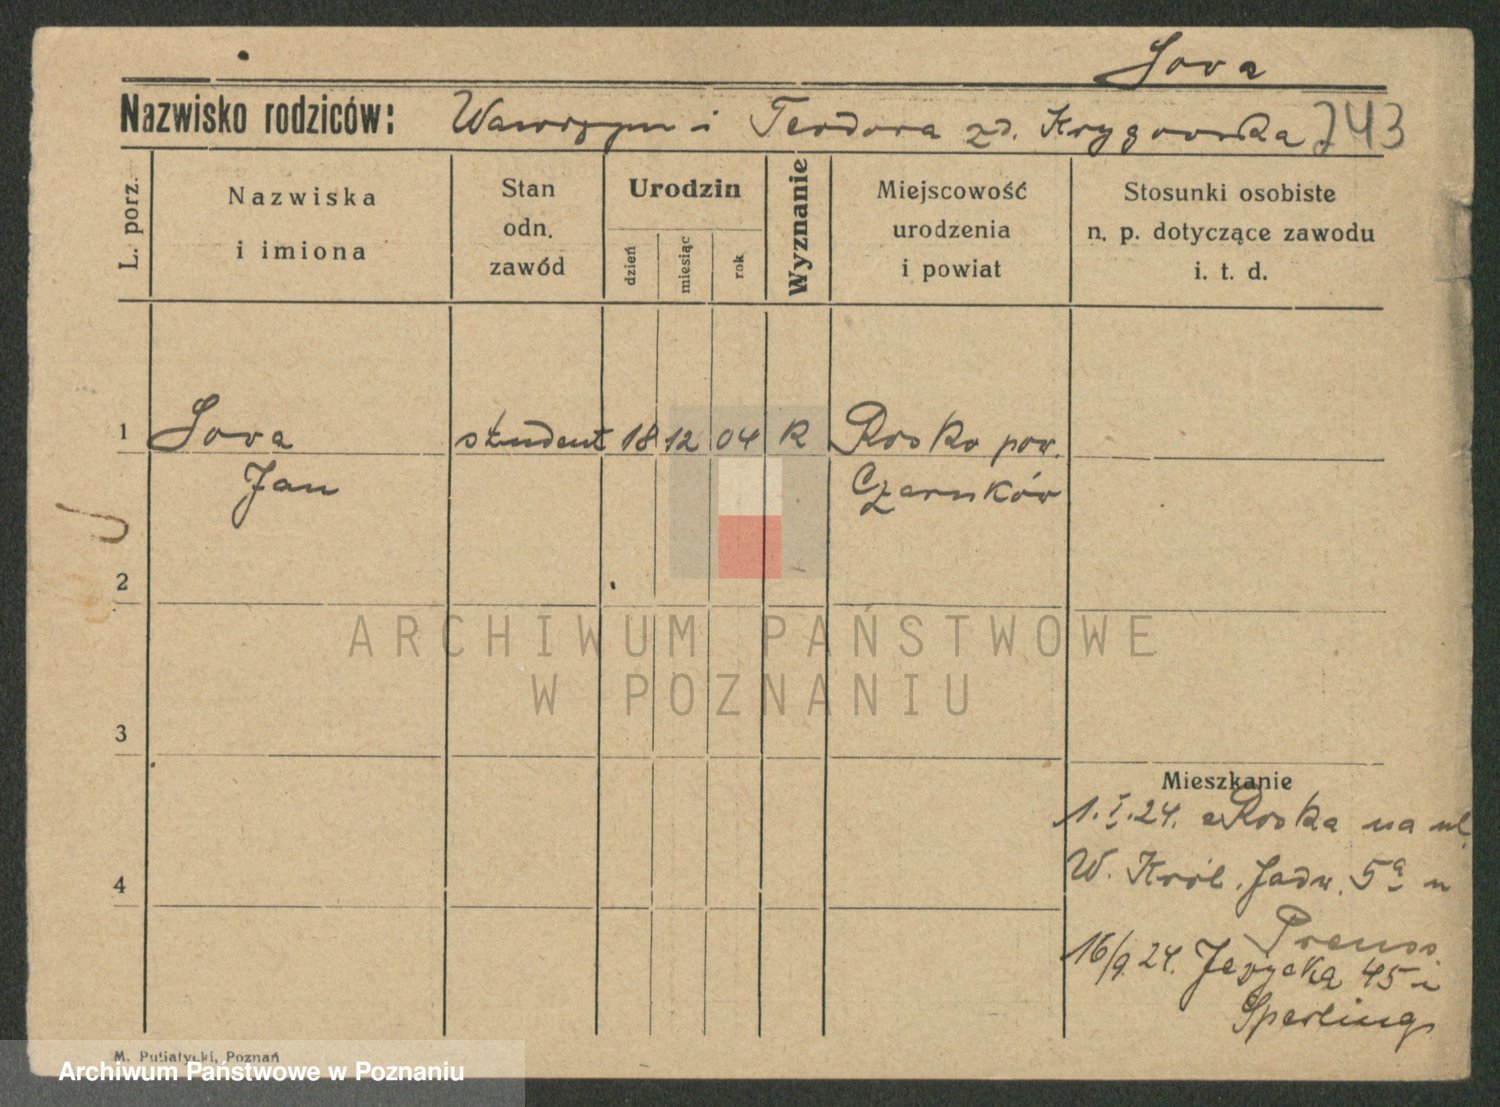 Sova
Nazwisko rodziców: Wawrzyn i Teodora zd. Krygowska 743
L. porz.
Nazwiska
i imiona
Stan
odn.
zawód
Urodzin
dzień
miesiąc
rok
Wyznanie
Miejscowość
urodzenia
i powiat
Stosunki osobiste
n. p. dotyczące zawodu
i. t. d.
1 Sova student 18 12 04 R Rosko pow.
Jan Czarnków
2
3
4
Mieszkanie
1. I. 24. z Roska na ul.
W. Król. Jadw. 5a u
Preuss
16/9. 24. Jeżycka 45 i
Sperling
M. Putiatycki, Poznań
ARCHIWUM PAŃSTWOWE
W POZNANIU
Archiwum Państwowe w Poznaniu